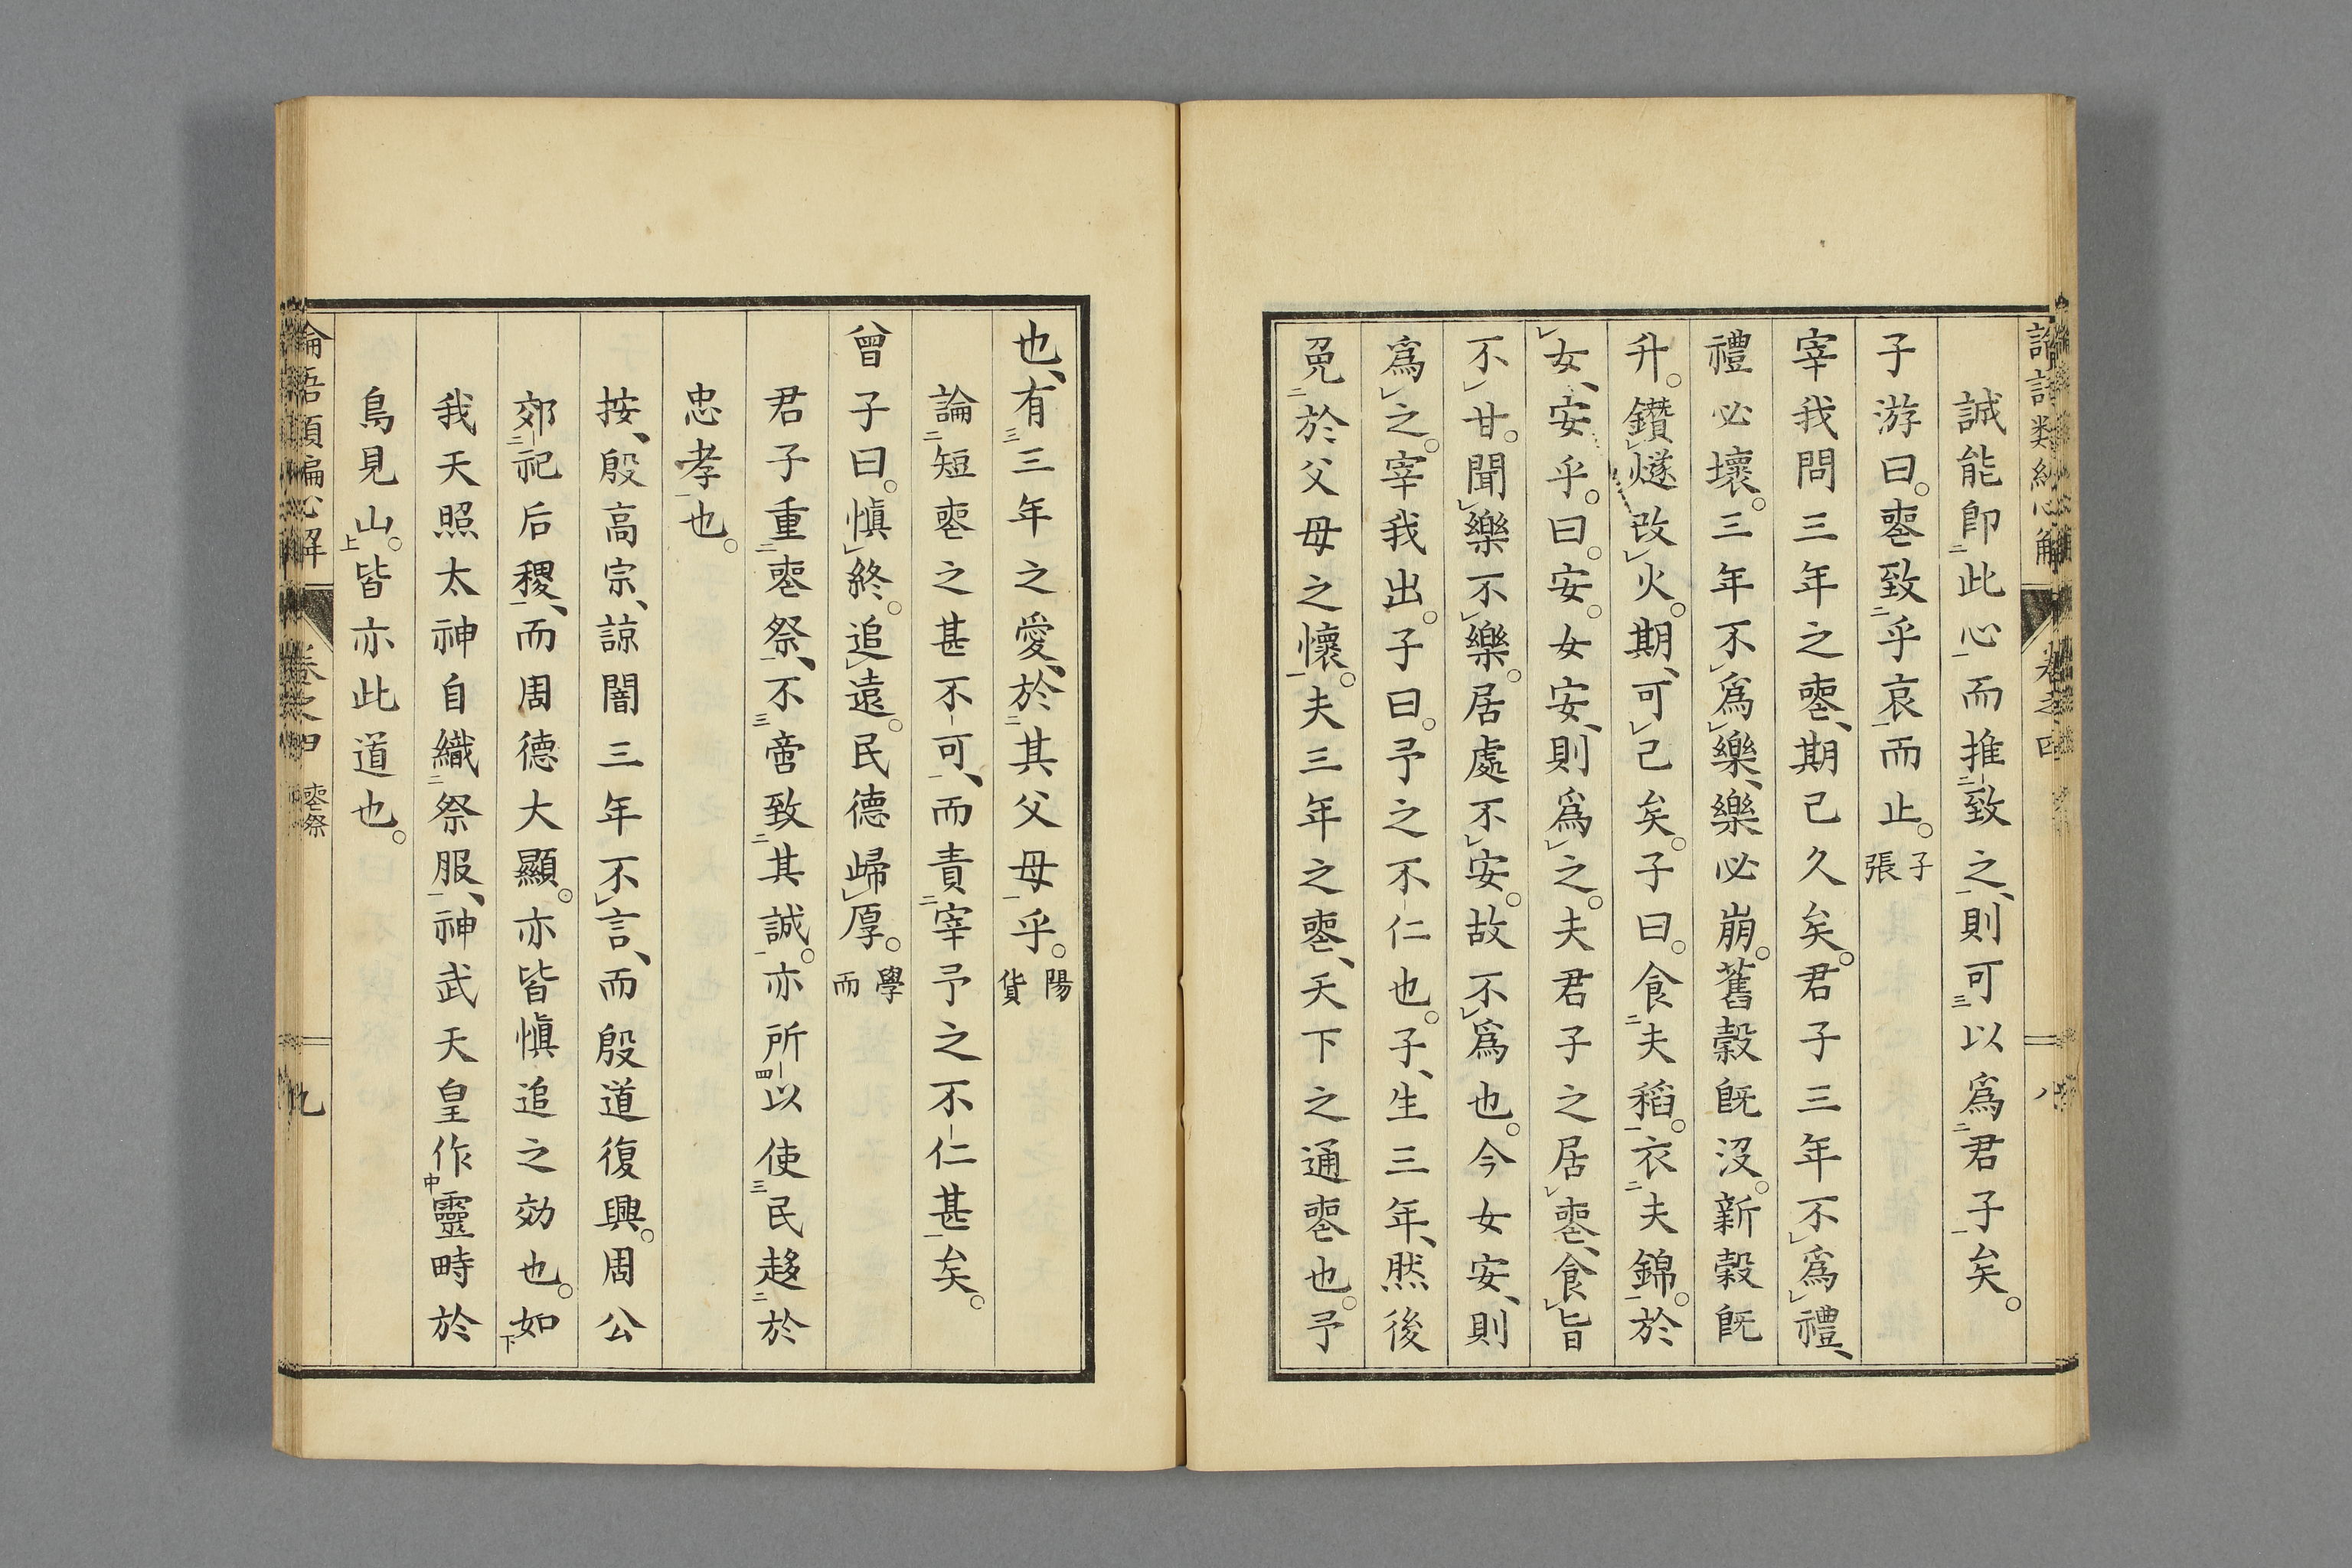 誠能卽此心而推致之、則可以爲君子矣。
子游曰。喪致乎哀而止。子張
宰我問三年之喪、期已久矣。君子三年不爲禮、
禮必壞。三年不爲樂、樂必崩。舊穀旣沒。新穀旣
升。鑽燧改火。期、可已矣。子曰。食夫稻。衣夫錦。於
女、安乎。曰。安。女安、則爲之。夫君子之居喪、食旨
不甘。聞樂不樂。居處不安。故不爲也。今女安、則
爲之。宰我出。子曰。予之不仁也。子、生三年、然後
免於父母之懷。夫三年之喪、天下之通喪也。予
也、有三年之愛、於其父母乎。陽貨
論短喪之甚不可、而責宰予之不仁甚矣。
曾子曰。愼終。追遠。民德歸厚。學而
君子重喪祭、不啻致其誠。亦所以使民趍於
忠孝也。
按、殷高宗、諒闇三年不言、而殷道復興。周公
郊祀后稷、而周德大顯。亦皆愼追之効也。如
我天照太神自織祭服、神武天皇作靈畤於
鳥見山。皆亦此道也。
論語類編心解 卷之四 喪祭 九